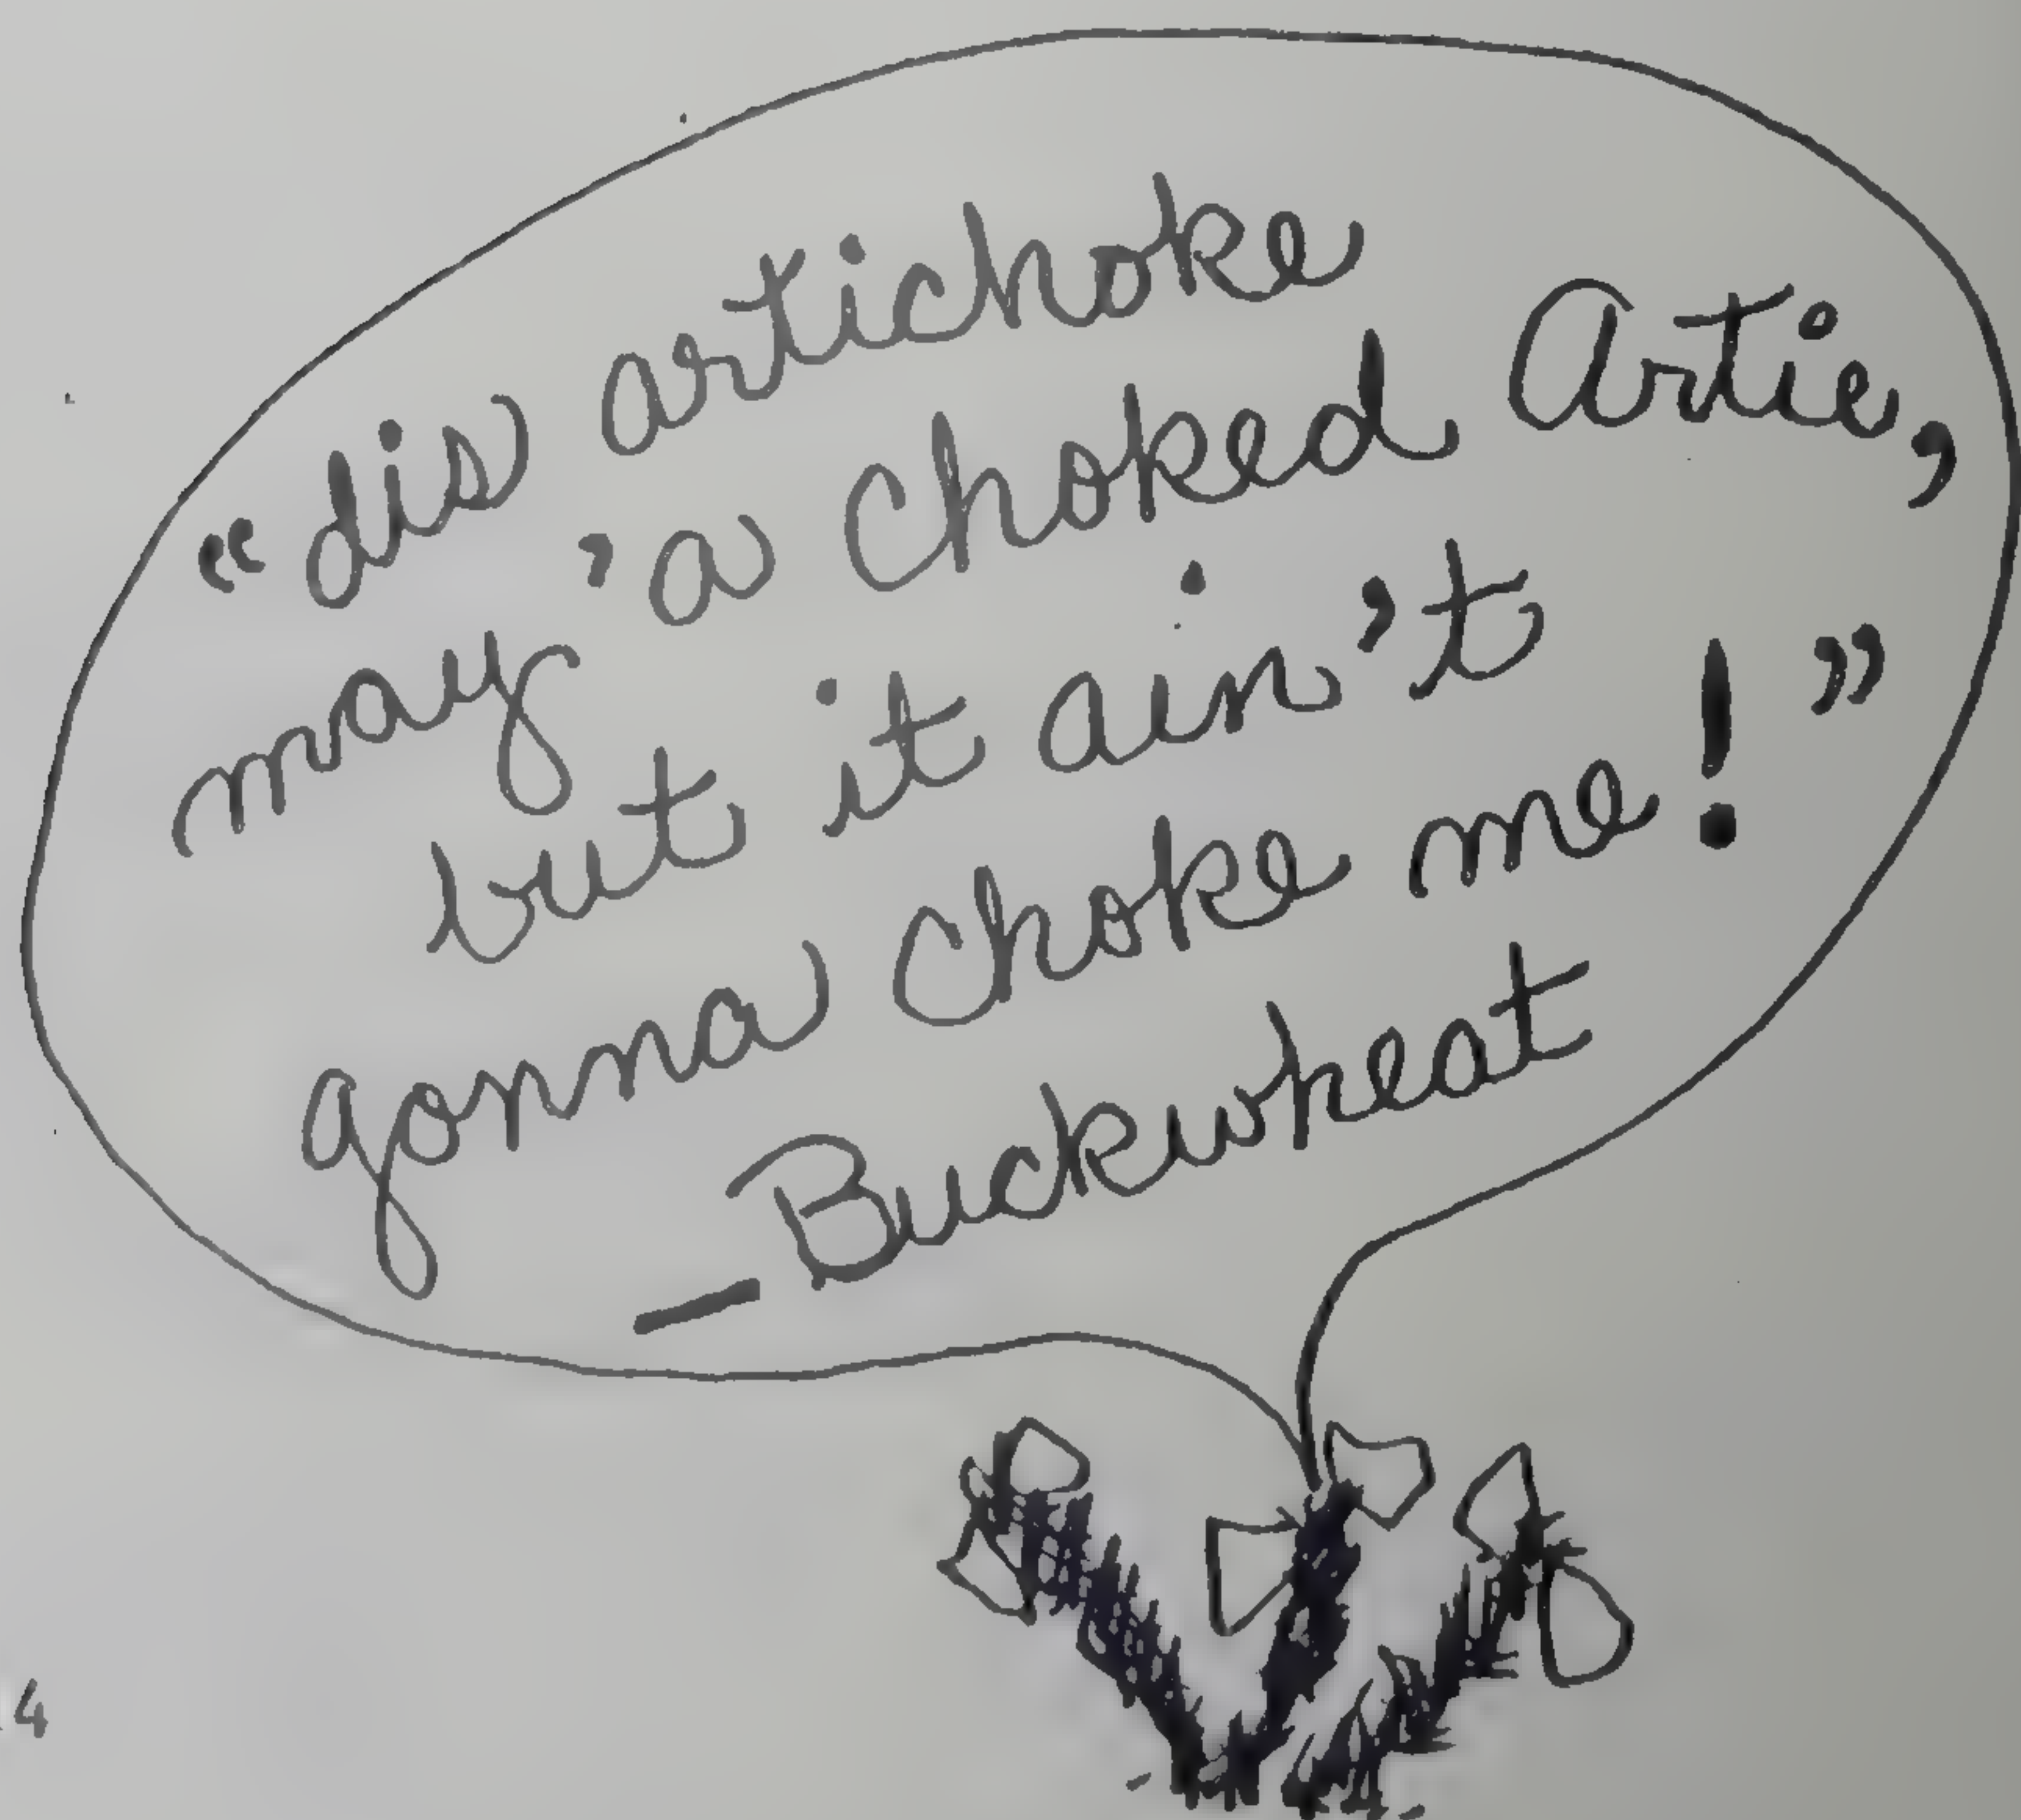 “dis artichoke
may 'a choked Artie,
but it ain't
gonna choke me!”
—Buckwheat
4